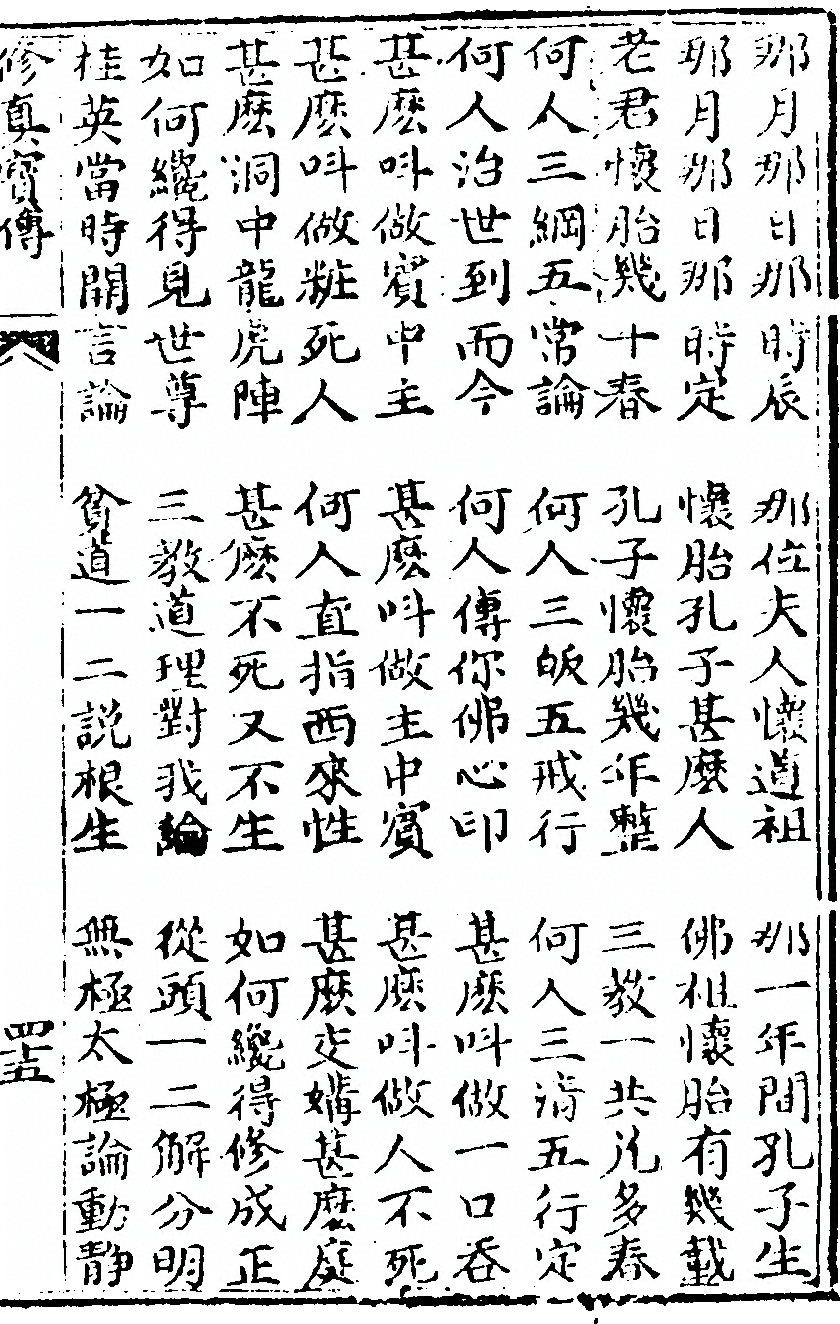 那月那日那時辰　那位夫人懷道祖　那一年間孔子生
那月那日那時定　懷胎孔子甚麼人　佛祖懷胎有幾載
老君懷胎幾十春　孔子懷胎幾年整　三教一共幾多春
何人三綱五常論　何人三皈五戒行　何人三淸五行定
何人治世到而今　何人傳你佛心印　甚麽叫做一口吞
甚麽叫做賓中主　甚麽叫做主中賓　甚麽叫做人不死
甚麽叫做粧死人　何人直指西來性　甚麽交媾甚麽庭
甚麽洞中龍虎陣　甚麽不死又不生　如何纔得修成正
如何纔得見世尊　三教道理對我論　從頭一二解分明
桂英當時開言論　貧道一二説根生　無極太極論動靜
修眞寳傳　四十五